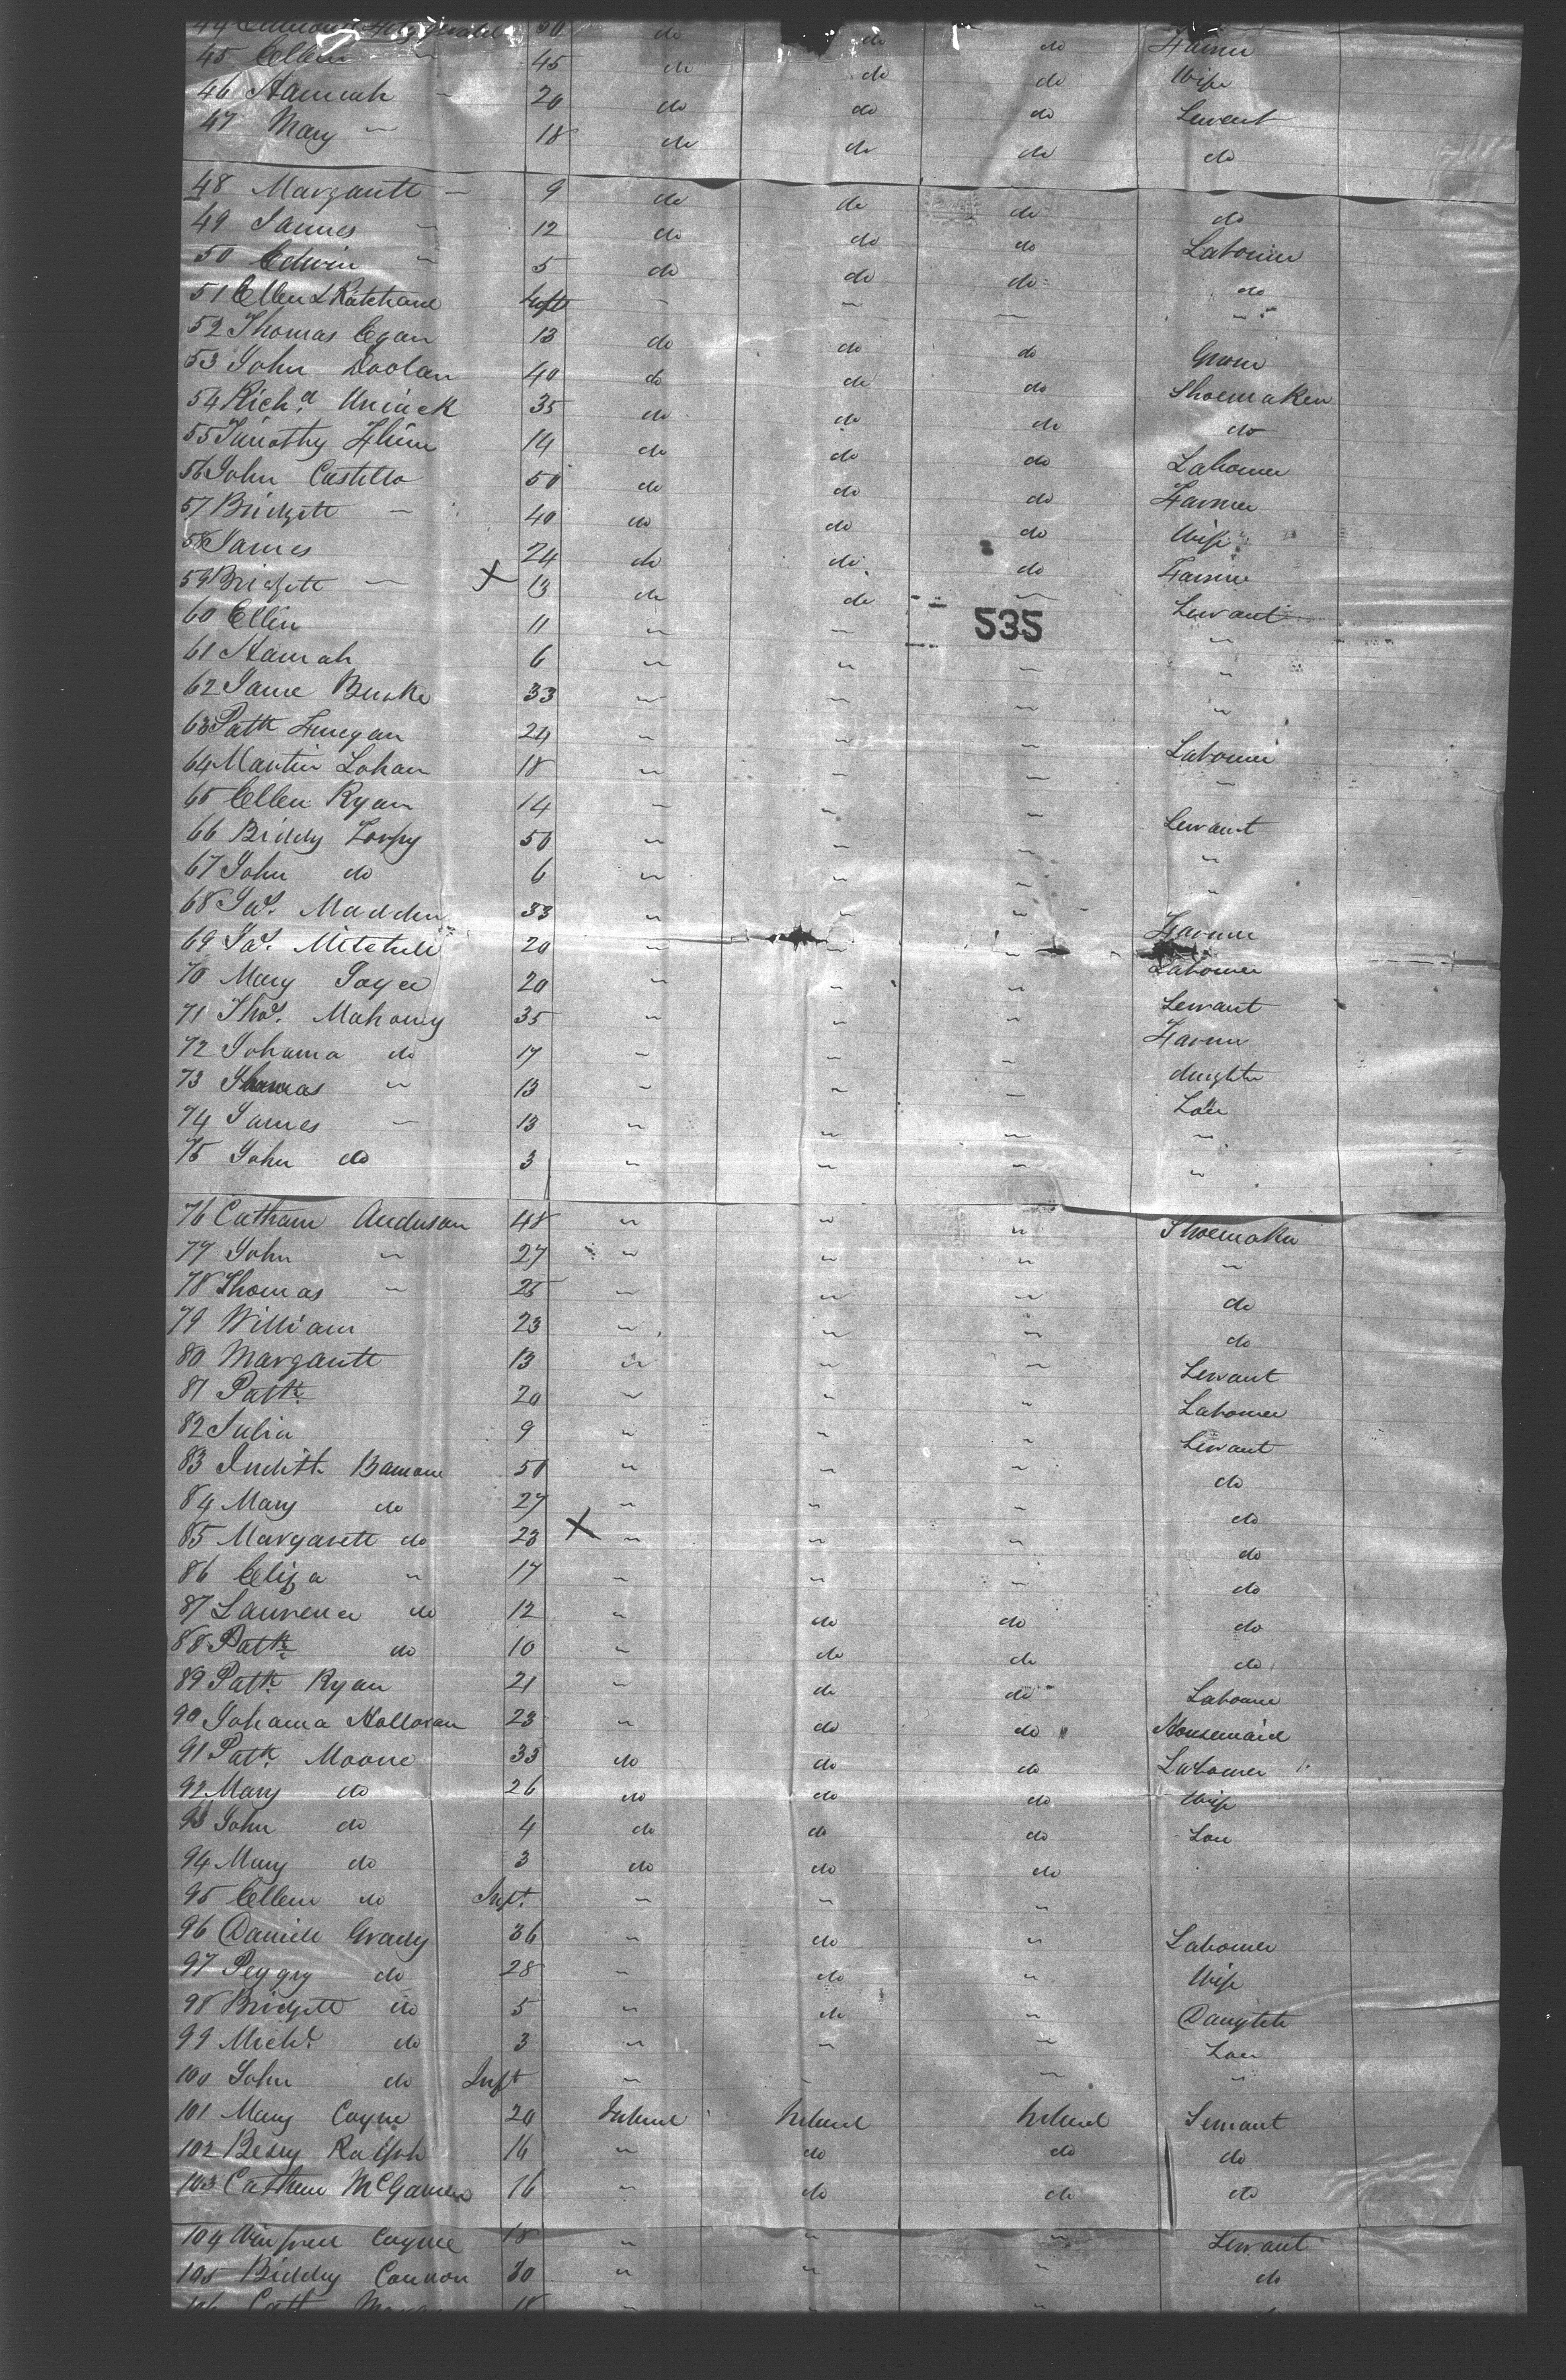 44 Edmond Fitzgerald 50 do do do Farmer
45 Ellen " 45 do do do Wife
46 Hannah - 20 do do do Servant
47 Mary " 18 do do do do
48 Margarett - 9 do do do do
49 James " 12 do do do Labourer
50 Edwin " 5 do do do do
51 Ellen Inft " " " "
52 Thomas Egan 13 do do do Groom
53 John Doolan 40 do do do Shoemaker
54 Richd. Uniack 35 do do do do
55 Timothy 14 do do do Labourer
56 John Castello 50 do do do Farmer
57 Bridgett - 40 do do do Wife
58 James 24 do do do Farmer
59 Bridgett - X 13 do do " Servant
60 Ellen 11 " " "
535
61 Hannah 6 " " " "
62 Jane Burke 33 " " " "
63 Patk Finegan 24 " " " Labourer
64 Martin Lohan 18 " " " "
65 Ellen Ryan 14 " " " Servant
66 Biddy 50 " " " "
67 John do 6 " " " "
68 Jas. Madden 33 " " " Farmer
69 Jas. Mitchell 20 " " " Labourer
70 Mary Joyce 20 " " " Servant
71 Thos. Mahoney 35 " " " Farmer
72 Johanna do 17 " " " daughter
73 Thomas " 13 " " " Son
74 James - 13 " " " "
75 John do 3 " " " "
76 Catharn Anderson 48 " " " Shoemaker
77 John " 27 " " " "
78 Thomas " 25 " " " do
79 William 23 " " " do
80 Margarett 13 " " " Servant
81 Patk. 20 " " " Labourer
82 Julia 9 " " " Servant
83 Judith 50 " " " do
84 Mary do 27 " " " do
85 Margarett do 23 X " " " do
86 Eliza " 17 " " " do
87 Laurence do 12 " do do do
88 Patk. do 10 " do do do
89 Patk. Ryan 21 " do do Labourer
90 Johanna Holloran 23 " do do Housemaid
91 Patk. Moore 33 do do do Labourer
92 Mary do 26 do do do Wife
93 John do 4 do do do Son
94 Mary do 3 do do do
95 Ellen do Inft. " " "
96 Daniell Grady 36 " do " Labourer
97 Peggy do 28 " do " Wife
98 Bridgett do 5 " do " Daughter
99 Michl. do 3 " " " Son
100 John do Inft " " " "
101 Mary Coyne 20 Ireland Ireland Ireland Servant
102 Bessy Ralph 16 " do do do
103 Cathrn 16 " do do do
104 Coyne 18 " " " Servant
105 Biddy Connon 30 " " " do
106 Cath 18 " "